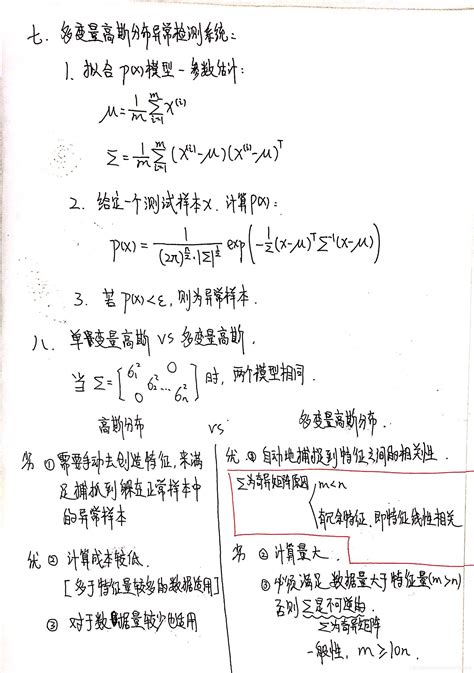 七、多变量高斯分布异常检测系统：
1. 拟合 p(x)模型 - 参数估计：
μ = 1/m ∑_{i=1}^{m} x^{(i)}
Σ = 1/m ∑_{i=1}^{m} (x^{(i)}-μ)(x^{(i)}-μ)^T
2. 给定一个测试样本x，计算p(x)：
p(x) = 1/((2π)^{n/2}·|Σ|^{1/2}) exp(-1/2(x-μ)^T Σ^{-1}(x-μ))
3. 若 p(x)<ε，则为异常样本.
八、单变量高斯 VS 多变量高斯.
当 Σ=[σ₁² σ₂² ... σₙ² 0 0] 时，两个模型相同.
高斯分布 vs 多变量高斯分布.
劣 ① 需要手动去创造特征，来满
足捕抓到 正常样本中
的异常样本
优 ② 计算成本较低.
[多于特征量较多的数据适用]
③ 对于数据量较少也适用
优 ① 自动地捕捉到特征之间的相关性.
Σ为奇异矩阵原因 { m<n
有冗余特征，即特征线性相关
劣 ② 计算量大.
③ 必须满足 数据量大于特征量(m>n)
否则 Σ是不可逆的.
Σ为奇异矩阵
一般性，m≥10n.